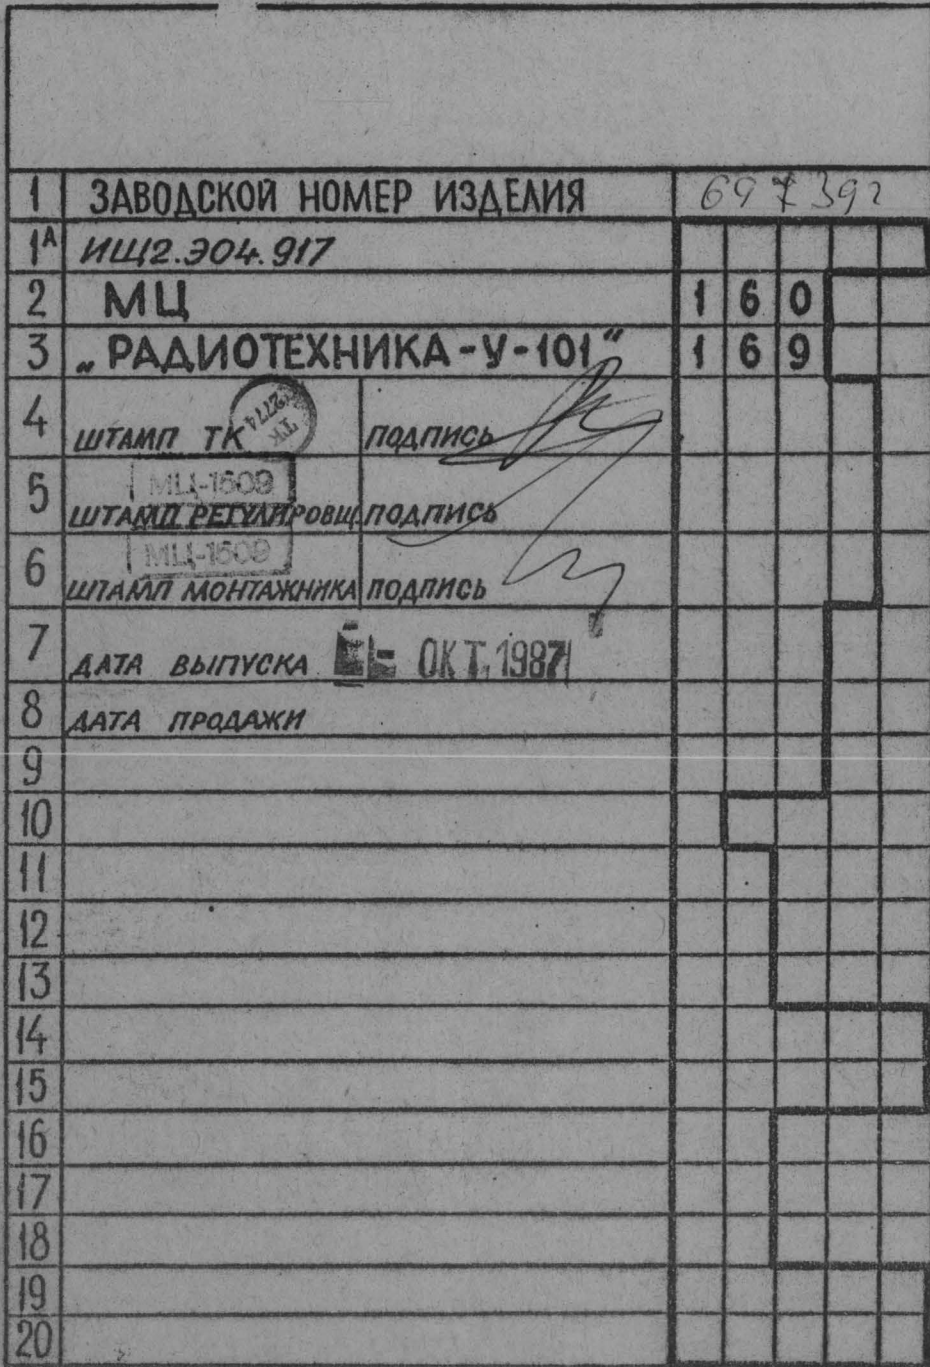 1 ЗАВОДСКОЙ НОМЕР ИЗДЕЛИЯ 697392
1А ИЩ2.ЭО4.917
2 МЦ 1 6 0
3 „РАДИОТЕХНИКА-У-101“ 1 6 9
4 ШТАМП ТК ТК ПОДПИСЬ
МЦ-1609
5 ШТАМП РЕГУЛИРОВЩ. ПОДПИСЬ
МЦ-1609
6 ШТАМП МОНТАЖНИКА ПОДПИСЬ
7 ДАТА ВЫПУСКА ОКТ. 1987
8 ДАТА ПРОДАЖИ
9
10
11
12
13
14
15
16
17
18
19
20